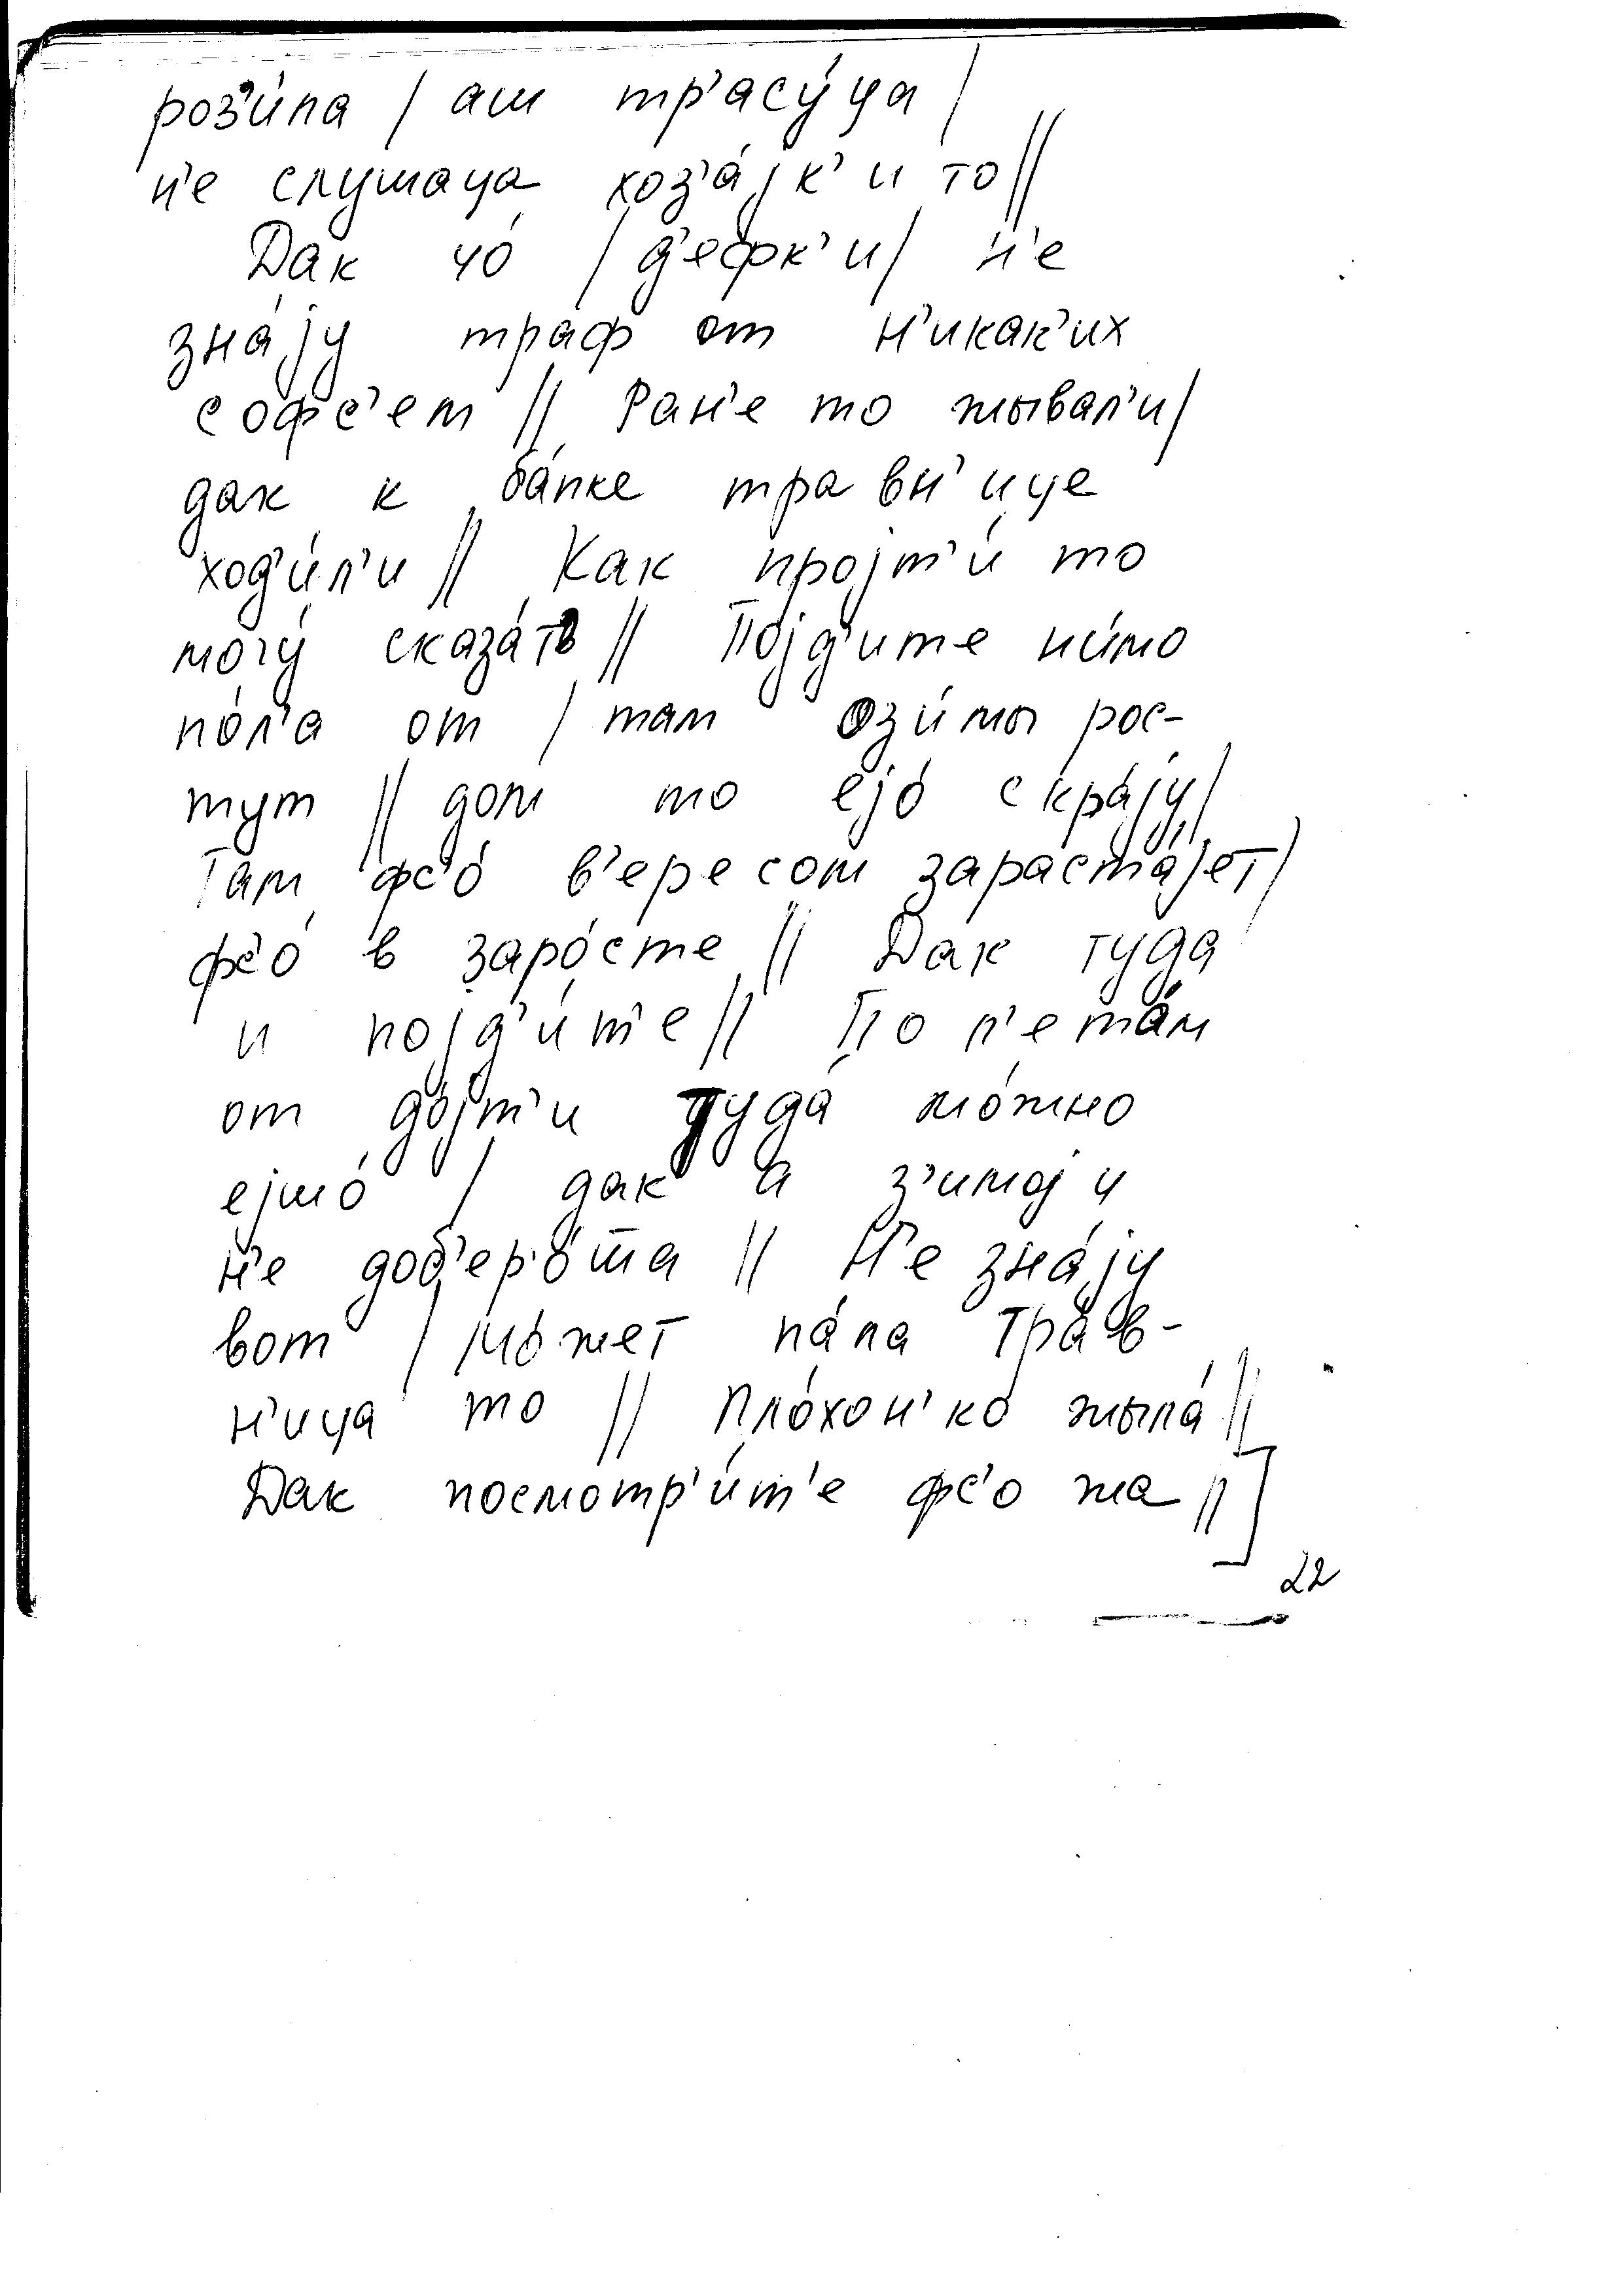 роз'и́ла / аш тр'асу́ца /
н'е слушаца хоз'а́јк'и то //
Дак чо́ / д'ефк'и / н'е
зна́ју тра́ф от н'икак'их
софс'ем // Ран'е то жывал'и /
дак к ба́пке травн'ице
ход'и́л'и // Как пројт'и́ то
могу́ сказа́ть // Појд'ите ми́мо
по́л'а от / там ози́мы рос-
тут // дом то ејо́ скра́ју /
Там фс'о́ в'ересом зараста́јет /
фс'о́ в заро́сте // Дак туда
и појд'и́т'е // По л'ета́м
от дојт'и туда́ мо́жно
ејшо́ / дак а з'имој и
н'е доб'ер'о́ша // Н'е зна́ју
вот / мо́жет па́ла тра́в-
н'ица то // Пло́хон'ко жыла́ //
Дак посмотр'и́т'е фс'о жа // ]
22